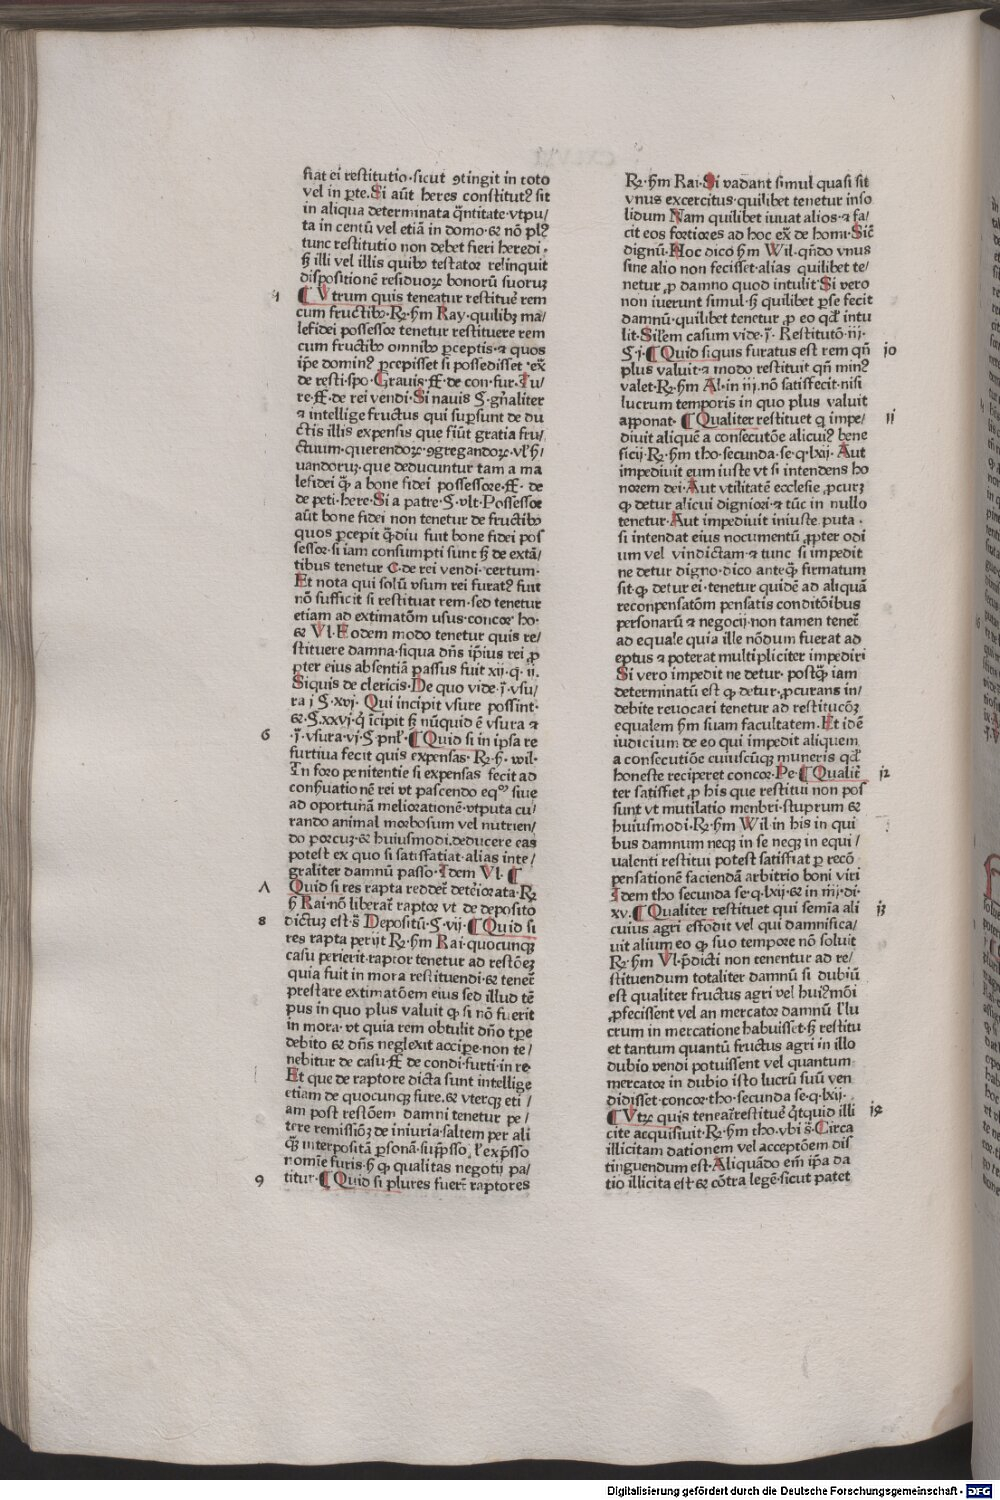 fiat ei restitutio·sicut ꝯtingit in toto
vel in ꝑte·Si aūt heres constitutꝰ sit
in aliqua determinata q̄ntitate·vtpu/
ta in centū vel etiā in domo·⁊ nō plꝰ
tunc restitutio non debet fieri heredi·
ß illi vel illis quibꝰ testator relinquit
dispositionē residuoꝝ bonorū suoruꝫ
¶ Vtrum quis teneatur restituē rem
cum fructibꝰ·Rꝫ·ẜm Ray·quilibꝫ ma/
lefidei possessor tenetur restituere rem
cum fructibꝰ omnibꝰ ꝑceptis·⁊ quos
ip̄e dominꝰ ꝑcepisset si possedisset·ex̄
de resti·spo·Grauis·ff·de con·fur·In/
re·ff·de rei vendi·Si nauis §·gn̄aliter
⁊ intellige fructus qui suꝑsunt de du
ctis illis expensis que fiūt gratia fru/
ctuum·querendoꝝ·ꝯgregandoꝝ·vl'
uandoruꝫ·que deducuntur tam a ma
lefidei q̄ꝫ a bone fidei possessore·ff·de
de peti·here·Si a patre·§·vlt·Possessor
aūt bone fidei non tenetur de fructibꝰ
quos ꝑcepit q̄ꝫdiu fuit bone fidei pos
sessor·si iam consumpti sunt ß de extā/
tibus tenetur C·de rei vendi·certum·
Et nota qui solū vsum rei furatꝰ fuit
nō sufficit si restituat rem·sed tenetur
etiam ad extimatōm usus·concor ho·
⁊ Vl·Eodem modo tenetur quis re/
stituere damna·siqua dn̄s ip̄ius rei ꝓ
pter eius absentiā passus fuit xij·q·ij·
Siquis de clericis·De quo vide·j̄·vsu/
ra j §·xvj· Qui incipit vsure possint·
⁊·§·xxvj·q̄ īcipit ß nūquid ē vsura ⁊
·j̄·vsura·vj·§ pnl̄·¶ Quid si in ipsa re
furtiua fecit quis expensas·Rꝫ·ẜ·wil·
In foro penitentie si expensas fecit ad
conẜuationē rei vt pascendo equ siue
ad oportunā meliorationē·vtputa cu/
rando animal morbosum vel nutrien/
do porcuꝫ·⁊ huiusmodi·deducere eas
potest ex quo si satisfatiat·alias inte/
graliter damnū passo·Idem Vl·¶
Quid si res rapta redder̄ deteriorata·Rꝫ
ẜ Rai·nō liberat̄ raptor vt de deposito
dictuꝫ est·s̄ Depositū·§·vij·¶ Quid si
res rapta perijt Rꝫ·ẜm Rai·quocunqꝫ
casu perierit·raptor tenetur ad restōeꝫ
quia fuit in mora restituendi·⁊ tenet̄
prestare extimatōem eius sed illud tē
pus in quo plus valuit ꝙ si nō fuerit
in mora·vt quia rem obtulit dn̄o tꝑe
debito ⁊ dn̄s neglexit accipe·non te/
nebitur de casu·ff·de condi·furti·in re
Et que de raptore dicta sunt intellige
etiam de quocunqꝫ fure·⁊ vterqꝫ eti/
am post restōem damni tenetur pe/
tere remissiōꝫ de iniuria·saltem per ali
q̄ꝫ interpositā ꝑsonā·supp̄sso·l' exp̄sso
nomīe furis·ẜ ꝙ qualitas negotij pa/
titur·¶ Quid si plures fuer̄t raptores
Rꝫ·ẜm Rai·Si vadant simul quasi sit
vnus excercitus·quilibet tenetur inso
lidum Nam quilibet iuuat alios·⁊ fa/
cit eos fortiores ad hoc ex̄ de homi·Sic̄
dignū·Hoc dico ẜm Wil·qn̄do vnus
sine alio non fecisset·alias quilibet te/
netur ꝓ damno quod intulit Si vero
non iuerunt simul·ß quilibet ꝑse fecit
damnū·quilibet tenetur ꝓ eo qd' intu
lit·Sil'em casum vide·j̄· Restitutō·iij·
§·j·¶ Quid siquis furatus est rem qn̄
plus valuit·⁊ modo restituit qn̄ minꝰ
valet·Rꝫ·ẜm Al·in iij·nō satisfecit·nisi
lucrum temporis in quo plus valuit
apponat· ¶ Qualiter restituet q impe/
diuit aliquē a consecutōe alicuiꝰ bene
ficij·Rꝫ·ẜm tho·secunda·se·q·lxij· Aut
impediuit eum iuste vt si intendens ho
norem dei·Aut vtilitatē ecclesie ꝓcurꝫ
ꝙ detur alicui digniori·⁊ tūc in nullo
tenetur·Aut impediuit iniuste puta·
si intendat eius nocumentū ꝓpter odi
um vel vindictam·⁊ tunc si impedit
ne detur digno·dico anteq̄ꝫ firmatum
sit·ꝙ detur ei·tenetur quidē ad aliquā
reconpensatōm pensatis conditōibus
personarū ⁊ negocij·non tamen tenet̄
ad equale quia ille nōdum fuerat ad
eptus ⁊ poterat multipliciter impediri
Si vero impedit ne detur· postq̄ꝫ iam
determinatū est ꝙ detur·ꝓcurans in/
debite reuocari tenetur ad restitucōꝫ
equalem ẜm suam facultatem·Et idē
iudicium de eo qui impedit aliquem
a consecutiōe cuiuscūqꝫ muneris qd'
honeste reciperet concor·Pe·¶ Qualit̄
ter satisfiet ꝓ his que restitui non pos
sunt vt mutilatio menbri·stuprum ⁊
huiusmodi·Rꝫ·ẜm Wil·in his in qui
bus damnum neqꝫ in se neqꝫ in equi/
ualenti restitui potest satisfiat ꝑ recō
pensationē faciendā arbitrio boni viri
Idem tho secunda se·q·lxij·⁊ in iiij·di·
xv·¶ Qualiter restituet qui semīa ali
cuius agri effodit vel qui damnifica/
uit alium eo ꝙ suo tempore nō soluit
Rꝫ·ẜm Vl·p̄dicti non tenentur ad re/
stituendum totaliter damnū si dubiū
est qualiter fructus agri vel huiꝰmōi
ꝓfecissent vel an mercator damnū l' lu
crum in mercatione habuisset·ß restitu
et tantum quantū fructus agri in illo
dubio vendi potuissent vel quantum
mercator in dubio isto lucrū suū ven
didisset·concor·tho·secunda se·q·lxij·
¶ Vtꝝ quis teneat̄ restituē q̄tquid illi
cite acquisiuit·Rꝫ·ẜm tho·vbi s̄·Circa
illicitam dationem vel acceptōem dis
tinguendum est·Aliquādo em̄ ip̄a da
tio illicita est·⁊ cōtra legē·sicut patet